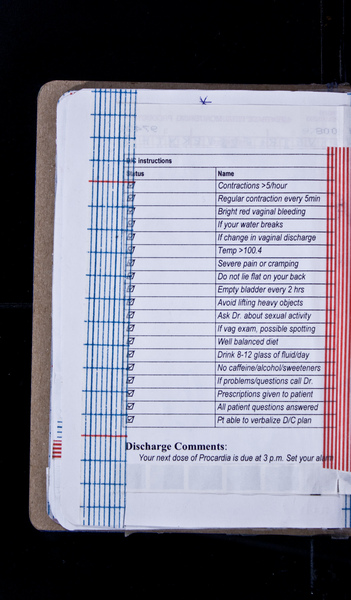 D/C instructions
Status Name
Contractions >5/hour
Regular contraction every 5min
Bright red vaginal bleeding
If your water breaks
If change in vaginal discharge
Temp >100.4
Severe pain or cramping
Do not lie flat on your back
Empty bladder every 2 hrs
Avoid lifting heavy objects
Ask Dr. about sexual activity
If vag exam, possible spotting
Well balanced diet
Drink 8-12 glass of fluid/day
No caffeine/alcohol/sweeteners
If problems/questions call Dr.
Prescriptions given to patient
All patient questions answered
Pt able to verbalize D/C plan
Discharge Comments:
Your next dose of Procardia is due at 3 p.m. Set your alarm